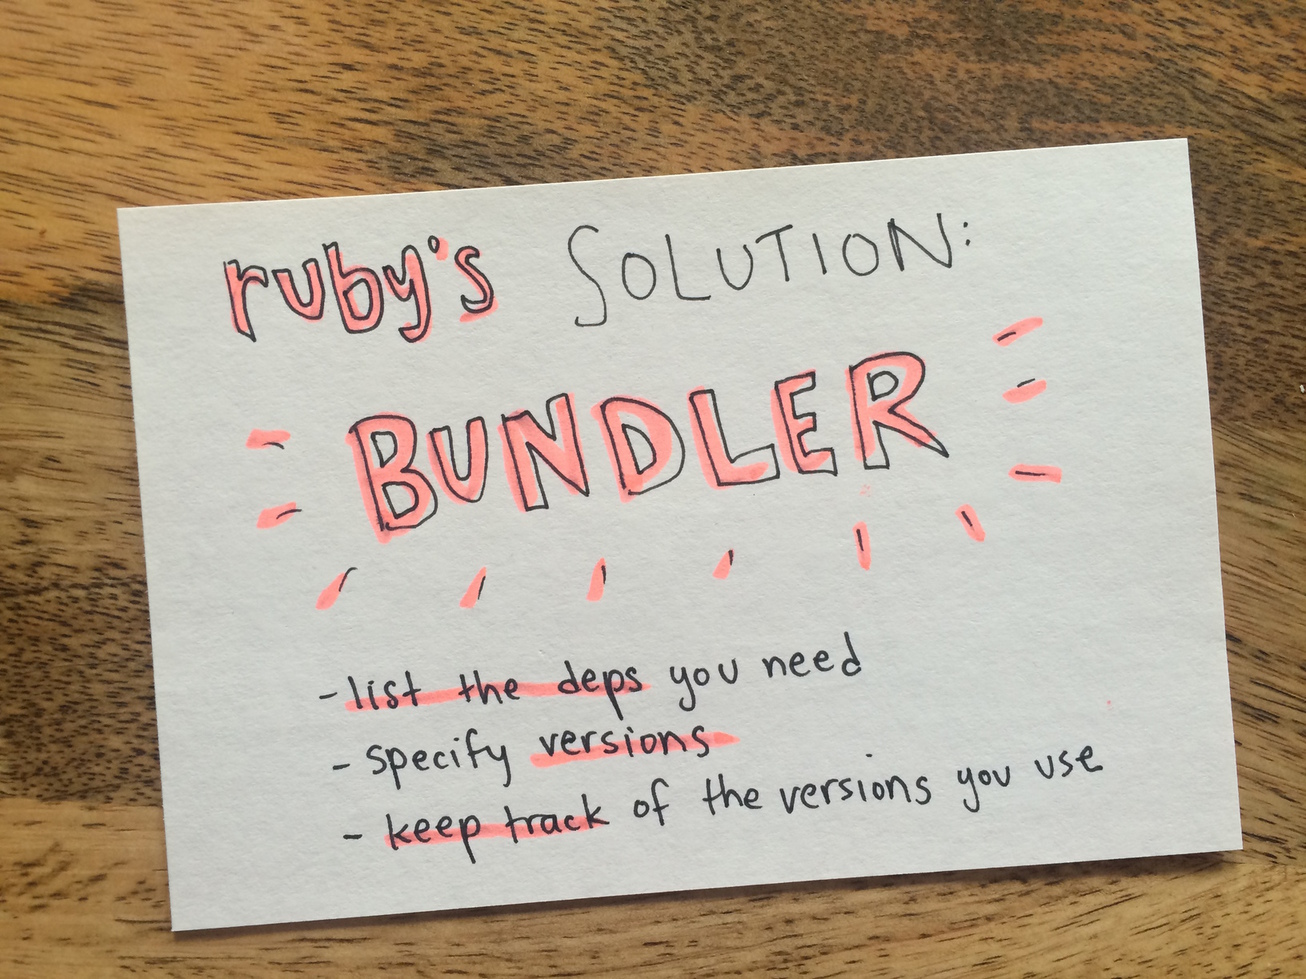 ruby's SOLUTION:
BUNDLER
- list the deps you need
- specify versions
- keep track of the versions you use